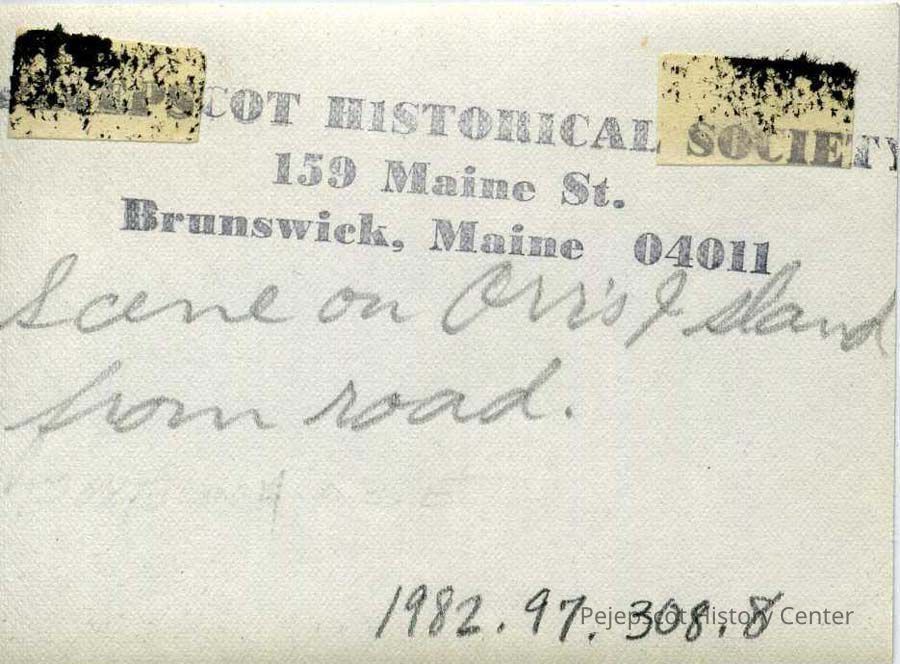 PEJEPSCOT HISTORICAL SOCIETY
159 Maine St.
Brunswick, Maine 04011
Scene on Orr's Island
from road.
1982.97.308.8
Pejepscot History Center